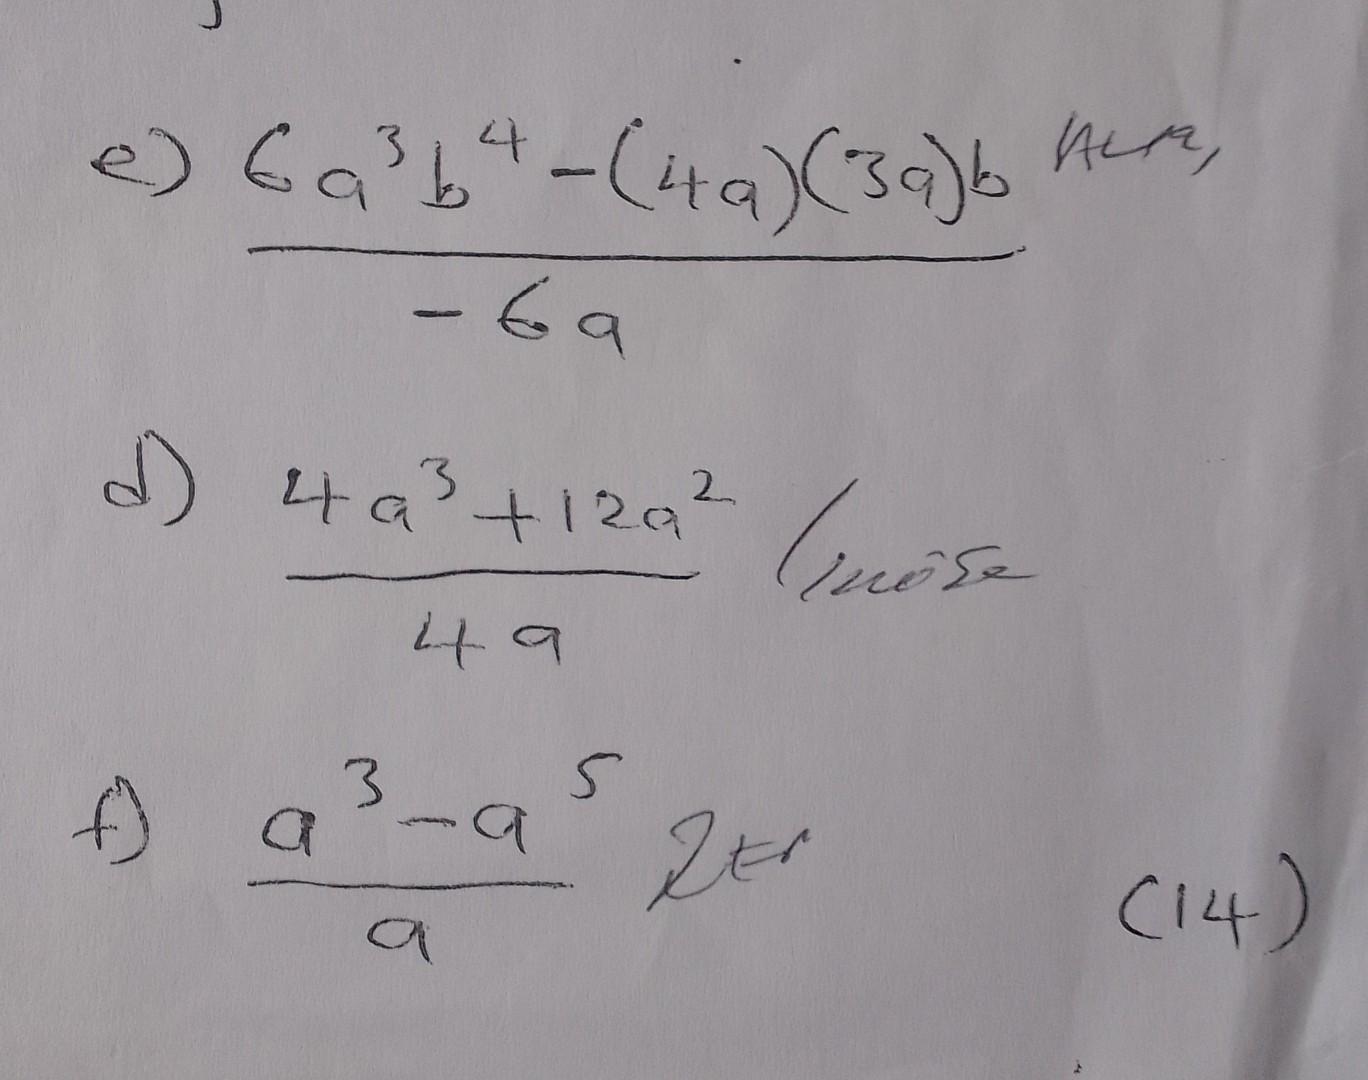 e) 6a³b⁴ - (4a)(3a)b
- 6a
d) 4a³ + 12a²
4a
f) a³ - a⁵
a
(14)